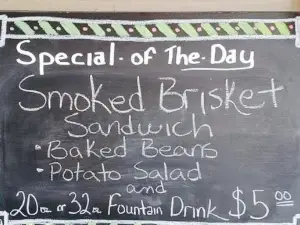 Special • of The • Day
Smoked Brisket
Sandwich
• Baked Beans
• Potato Salad
and
20oz or 32oz Fountain Drink $5.00